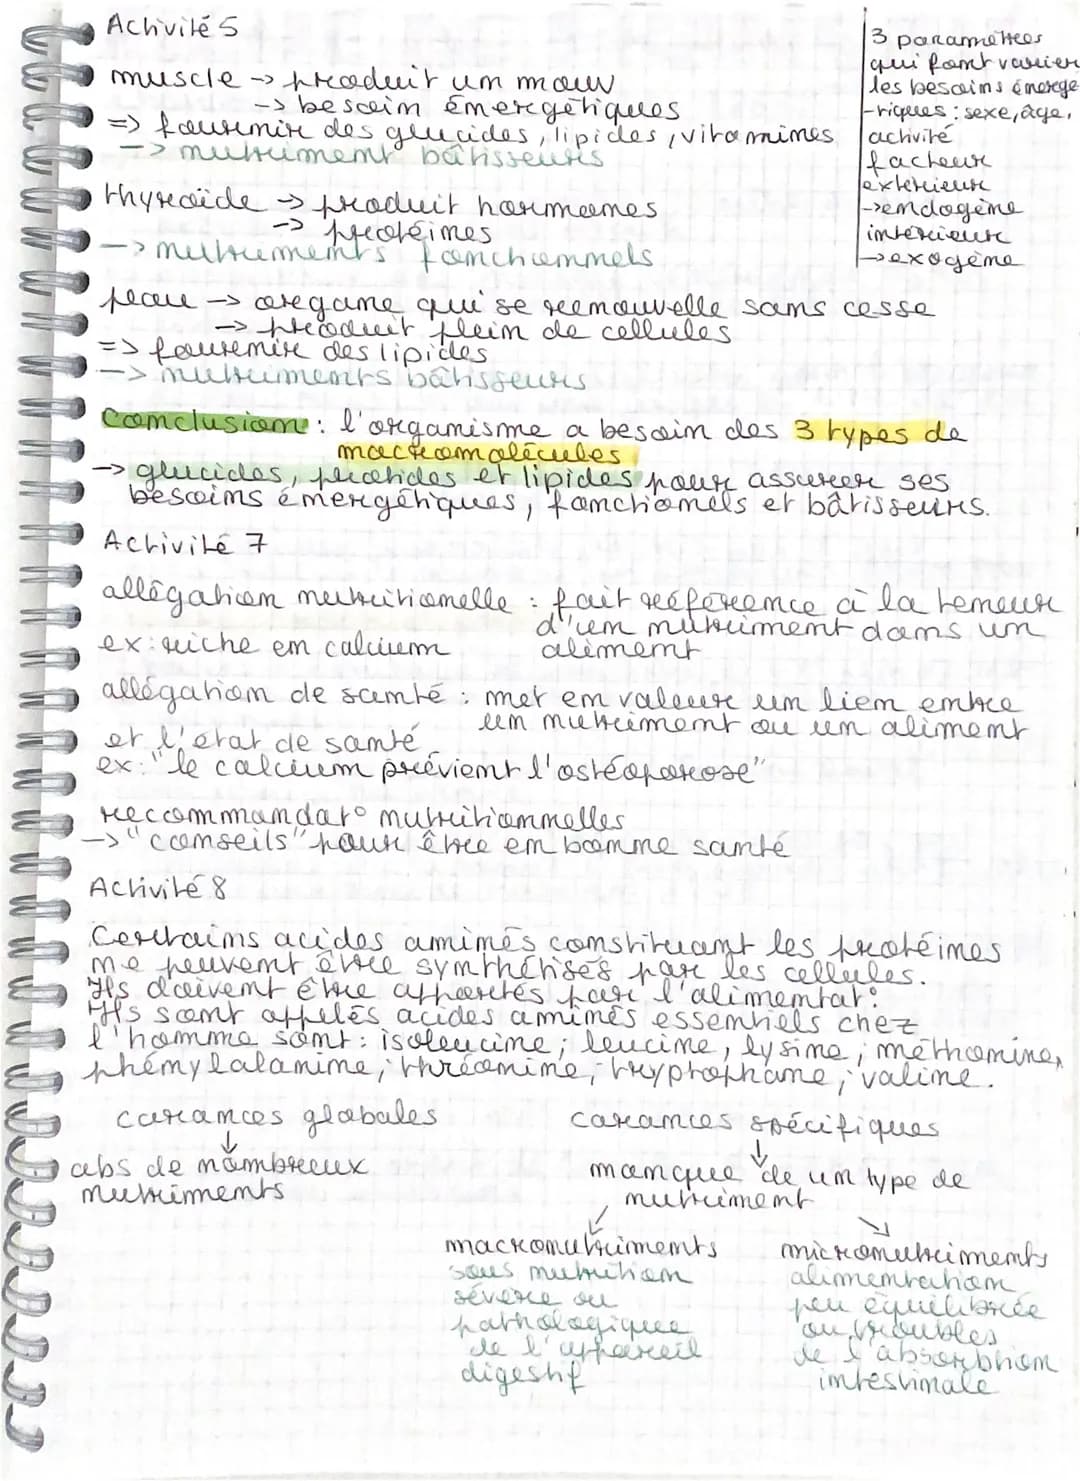 Activité 5
muscle -> produit un mouv
-> besoin énergétiques
=> fournir des glucides, lipides, vitamines
-> nutriment bâtisseurs
thyroïde -> produit hormones
-> protéines
-> nutriments fonctionnels
peau -> organe qui se renouvelle sans cesse
-> produit plein de cellules
=> fournir des lipides
-> nutriments bâtisseurs
3 paramètres
qui font varier
les besoins énergé
-tiques : sexe, âge,
activité
facteur
extérieur
->endogène
intérieur
->exogène
Conclusion : l'organisme a besoin des 3 types de
macromolécules
-> glucides, protides et lipides pour assurer ses
besoins énergétiques, fonctionnels et bâtisseurs.
Activité 7
allégation nutritionelle : fait référence à la teneur
d'un nutriment dans un
ex: riche en calcium aliment
allégation de santé : met en valeur un lien entre
un nutriment ou un aliment
et l'état de santé
ex: "le calcium prévient l'ostéoporose"
recommandat° nutritionnelles
-> "conseils" pour être en bonne santé
Activité 8
Certains acides aminés constituant les protéines
ne peuvent être synthétisés par les cellules.
Ils doivent être apportés par l'alimentat°.
Ils sont appelés acides aminés essentiels chez
l'homme sont : isoleucine ; leucine, lysine ; méthionine,
phénylalamine ; thréonine ; tryptophane ; valine.
carances globales
abs de nombreux
nutriments
carances spécifiques
manque de un type de
nutriment
macronutriments
sous nutrition
sévère ou
pathologique
de l'appareil
digestif
micronutriments
alimentation
peu équilibrée
ou troubles
de l'absorption
intestinale